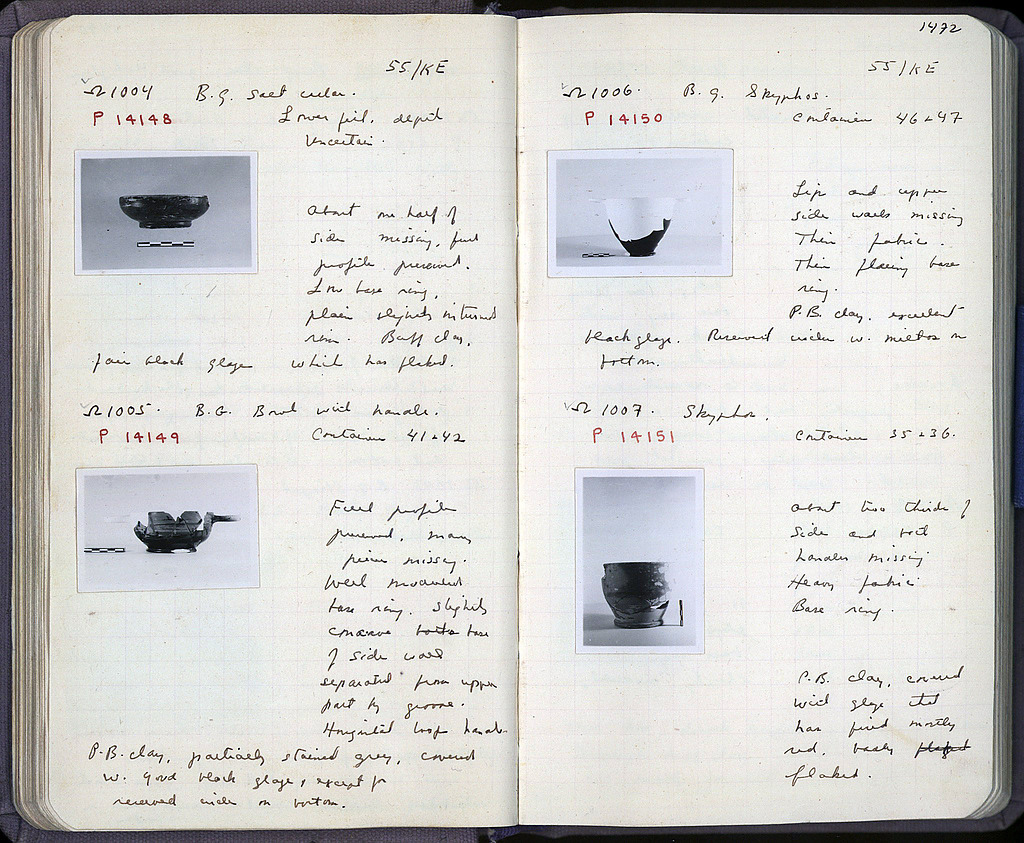 55/KE
Ω 1004 B.G. salt cellar.
P 14148 Lower fill, depth
uncertain.
About one half of
side missing, full
profile preserved.
Low base ring,
plain slightly inturned
rim. Buff clay,
fair black glaze which has flaked.
Ω 1005. B.G. Bowl with handle.
P 14149 Container 41+42
Full profile
preserved, many
pieces missing.
Well moulded
base ring. Slightly
concave base
of side wall
separated from upper
part by groove.
Horizontal loop handle
P.B. clay, partially stained grey, covered
w. good black glaze, except for
reserved circle on bottom.
1472
55/KE
Ω 1006. B.g. Skyphos.
P 14150 Container 46+47
Lip and upper
side walls missing
Thin fabric.
Thin flaring base
ring.
P.B. clay, excellent
black glaze. Reserved circle w. miltos on
bottom.
Ω 1007. Skyphos.
P 14151 Container 35+36.
About two thirds of
side and both
handles missing
Heavy fabric
Base ring.
P.B. clay, covered
with glaze that
has fired mostly
red, badly
flaked.